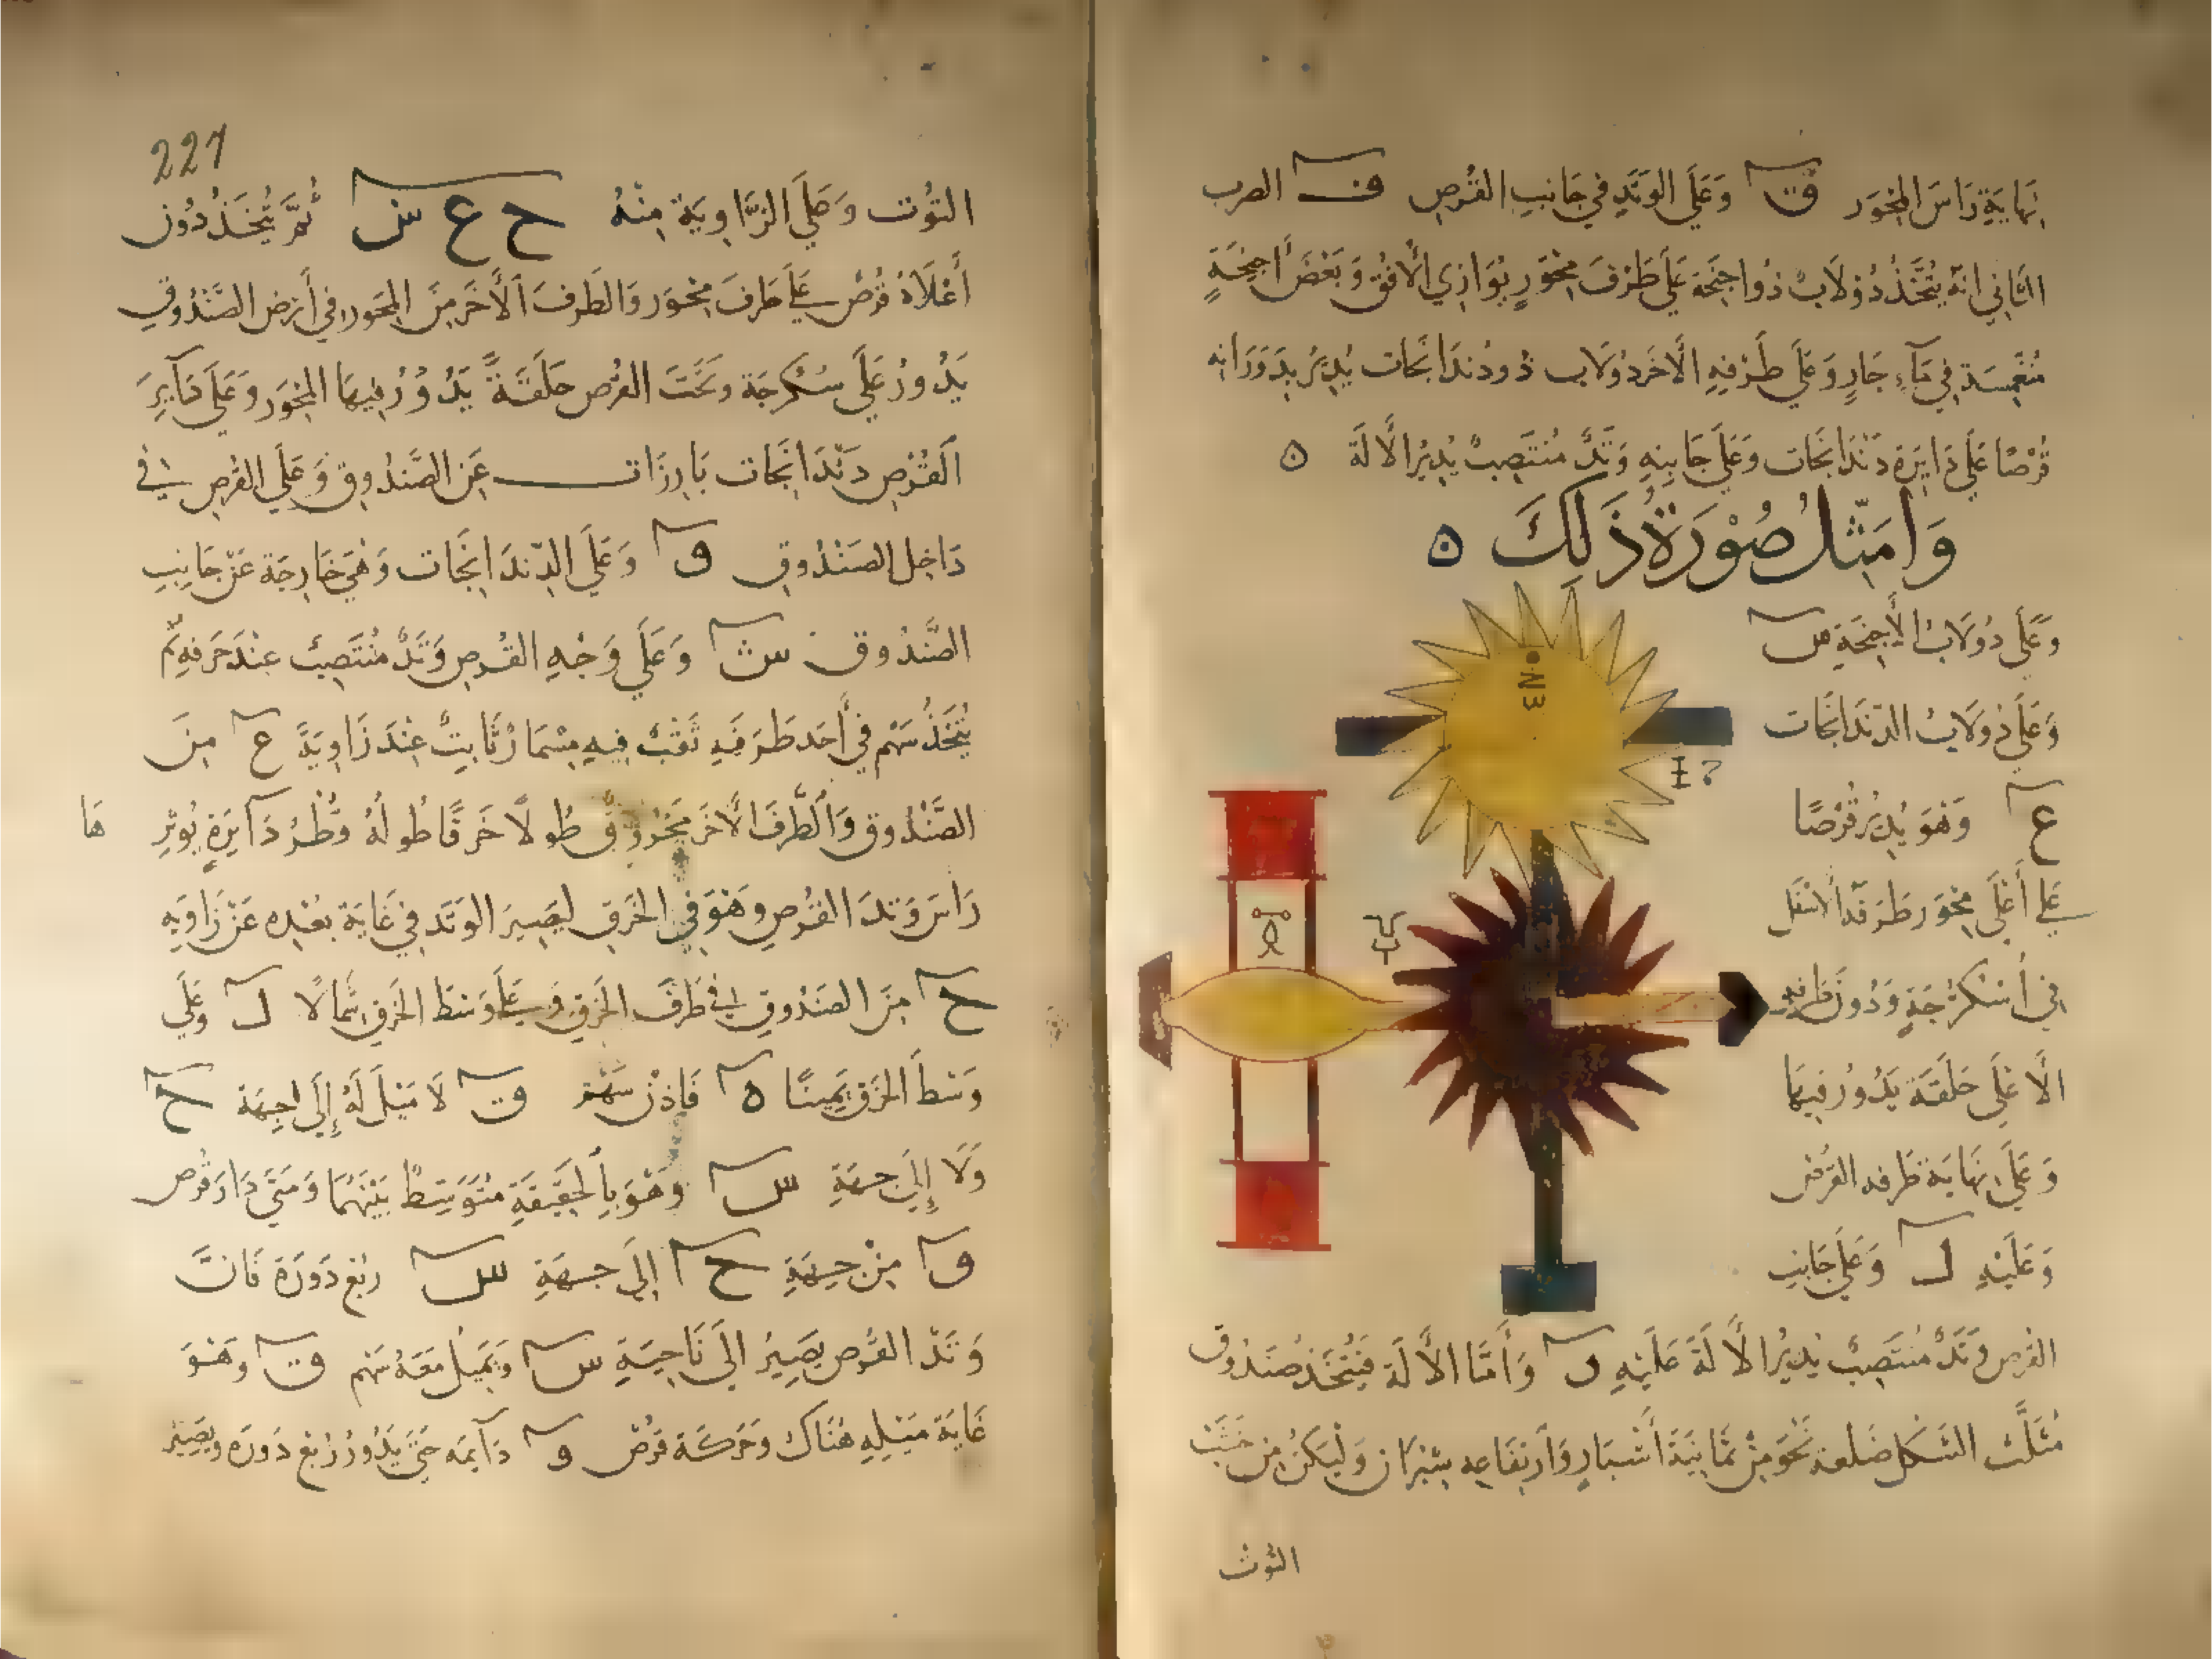 نهاية رأس المحور ق وعلى الوتد في جانب القرص ف الضرب
الثاني انه يتخذ دولاب ذو اجنحة على طرف محور يوازي الأفق وبعض أجنحة
منغمسة في ماء جار وعلى طرفه الاخر دولاب ذو دندانجات يدير بدورانه
قرصا على دايرة دندانجات وعلى جانبه وتد منتصب يدير الالة ه
وامثل صورة ذلك ه
وعلى دولاب الأجنحة ص
وعلى دولاب الدندانجات
ع وهو يدير قرصا
على أعلى محور طرفه الاسفل
في اسكرجة ودون طرفه
الأعلى حلقة يدور فيها
وعلى نهاية طرفه القرص
وعليه ل وعلى جانب
القرص وتد منتصب يدير الالة عليه ن وأما الالة فيتخذ صندوق
مثلث الشكل ضلعه نحو من ثمانية أشبار وارتفاعه شبران وليكن من خشب
التوث
221
التوث وعلى الزاوية منه ح ع س ثم يتخذ دون
أعلاه قرص على طرف محور والطرف الأخر من المحور في أرض الصندوق
يدور على سكرجة وتحت القرص حلقة يدور فيها المحور وعلى دايرة
القرص دندانجات بارزات عن الصندوق وعلى القرص في
داخل الصندوق و وعلى الدندانجات وهي خارجة عن جانب
الصندوق ث وعلى وجه القرص وتد منتصب عند حرفه ثم
يتخذ سهم في أحد طرفيه ثقب فيه مسمار ثابت عند زاوية ع من
الصندوق والطرف الاخر مخروق طولا خرقا طوله قطر دايرة يوتر ها
راس وتد القرص وهو في الخرق ليصير الوتد في غاية بعده عن زاويه
ح من الصندوق في طرف الخرق وعلى وسط الخرق شمالا ل وعلى
وسط الخرق يمينا ه فاذن سهم ق لا ميل له إلى جهة ح
ولا إلى جهة س وهو بالحقيقة متوسط بينهما ومتى دار قرص
و من جهة ح إلى جهة س ربع دورة فان
وتد القرص يصير الى ناحية س ويميل معه سهم ق وهو
غاية ميله هناك وحركة قرص و دايمه حتى يدور ربع دوره ويصير